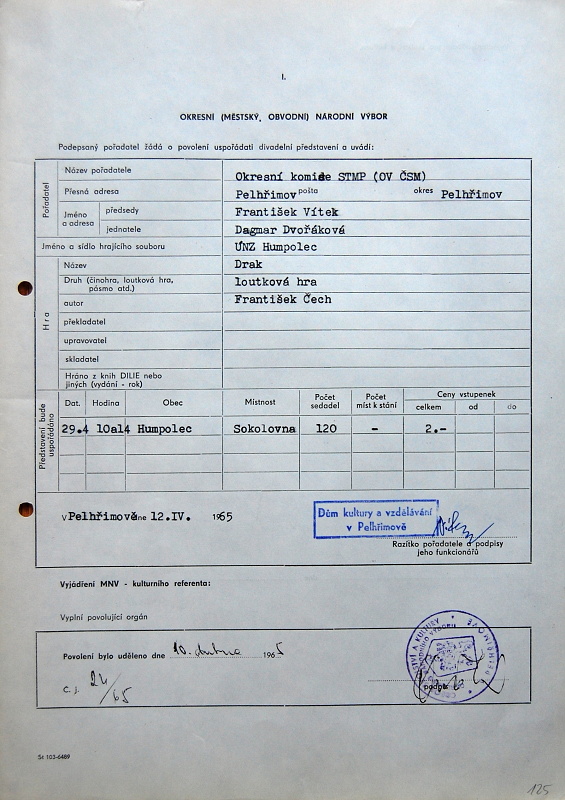 I.
OKRESNÍ (MĚSTSKÝ, OBVODNÍ) NÁRODNÍ VÝBOR
Podepsaný pořadatel žádá o povolení uspořádati divadelní představení a uvádí:
Pořadatel
Název pořadatele Okresní komise STMP (OV ČSM)
Přesná adresa Pelhřimov pošta okres Pelhřimov
Jméno a adresa
předsedy František Vítek
jednatele Dagmar Dvořáková
Jméno a sídlo hrajícího souboru ÚNZ Humpolec
Hra
Název Drak
Druh (činohra, loutková hra, pásmo atd.) loutková hra
autor František Čech
překladatel
upravovatel
skladatel
Hráno z knih DILIE nebo jiných (vydání - rok)
Představení bude uspořádáno
Dat. Hodina Obec Místnost Počet sedadel Počet míst k stání Ceny vstupenek
celkem od do
29.4 10a14 Humpolec Sokolovna 120 - 2.-
V Pelhřimově dne 12.IV. 1965
Dům kultury a vzdělávání
v Pelhřimově
Razítko pořadatele a podpisy
jeho funkcionářů
Vyjádření MNV - kulturního referenta:
Vyplní povolující orgán
Povolení bylo uděleno dne 10. dubna 1965
č. j. 24/65
podpis
St 103-6489
125